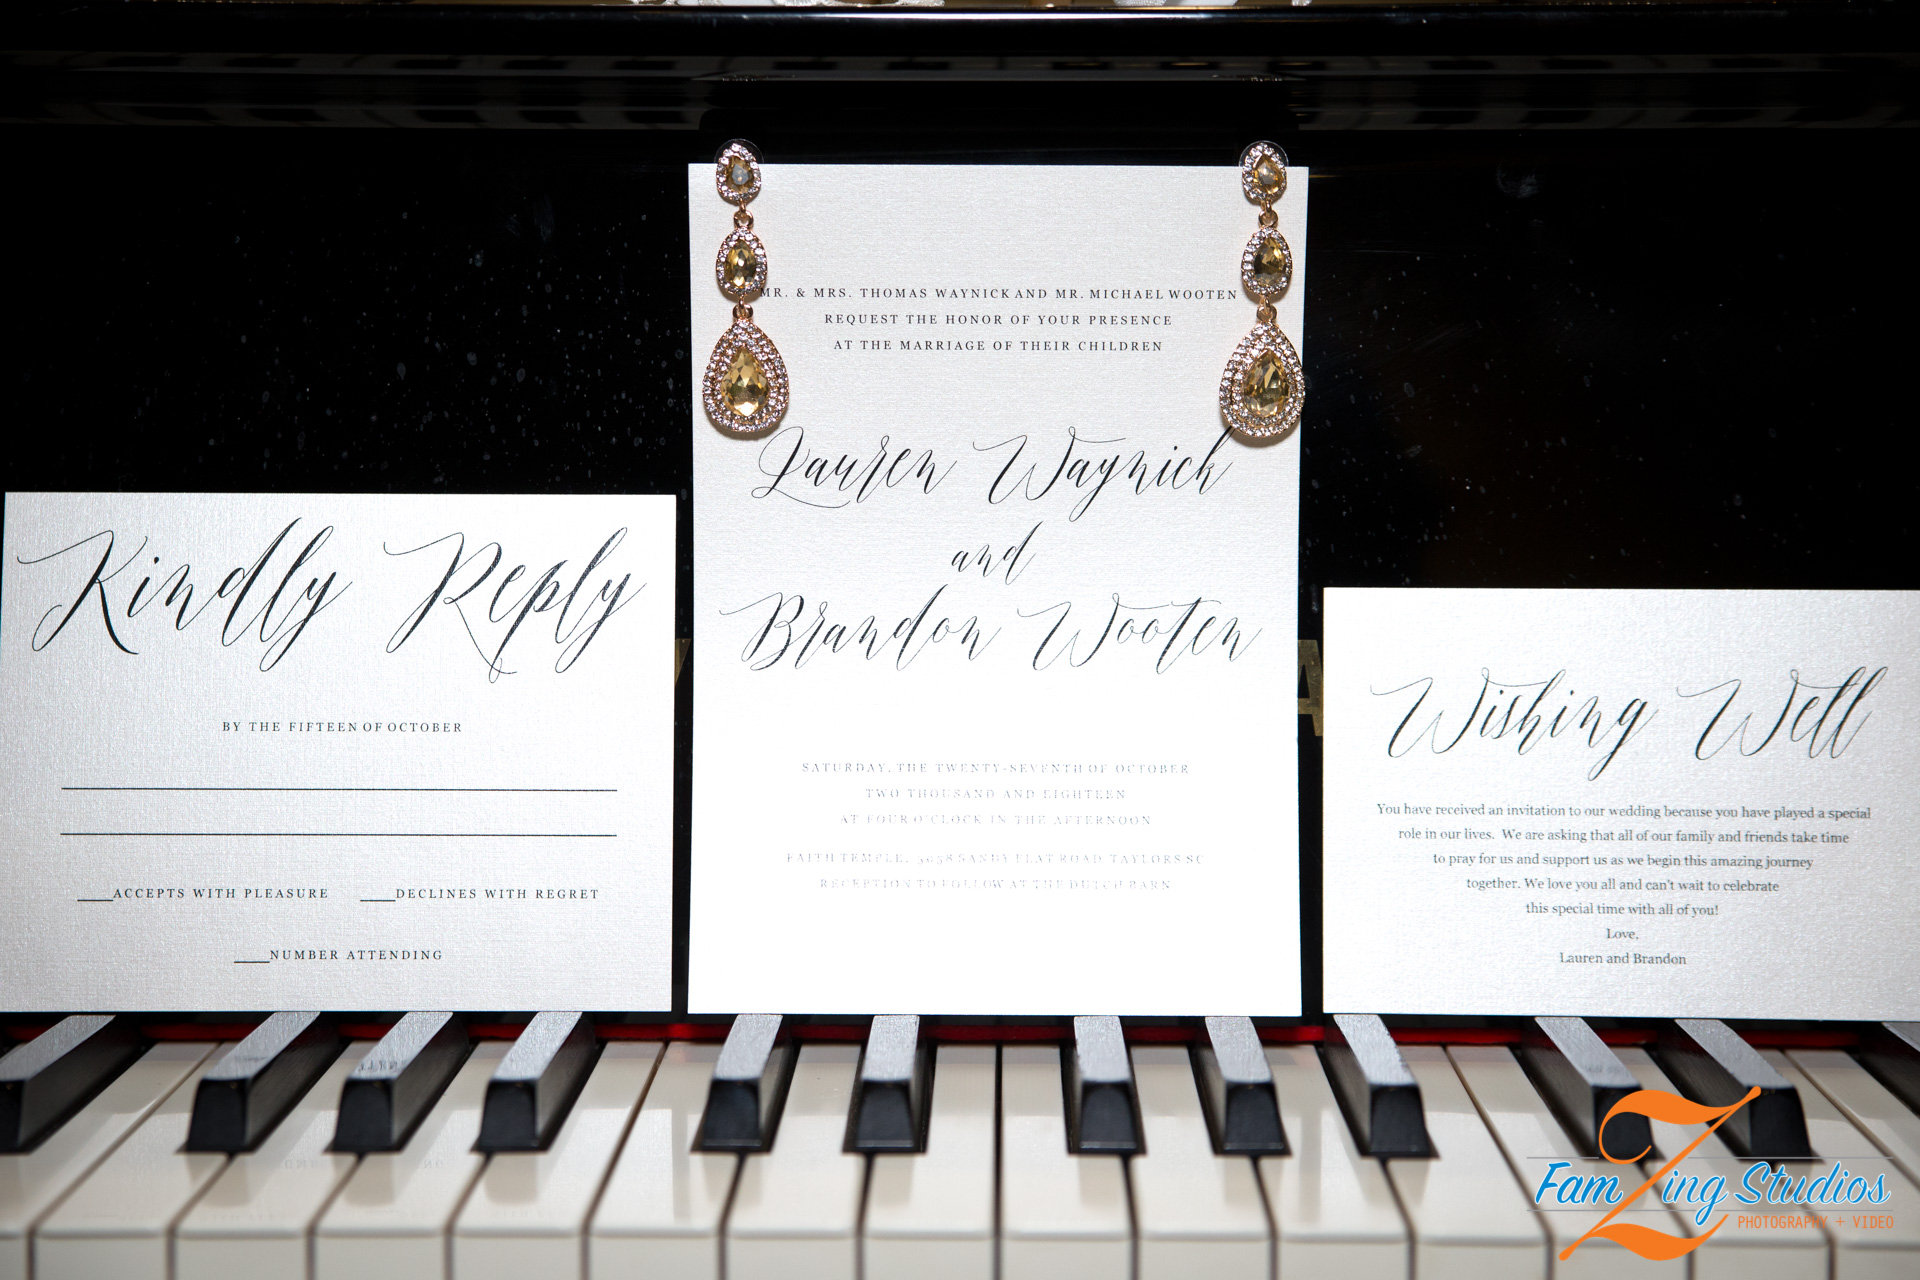 MR. & MRS. THOMAS WAYNICK AND MR. MICHAEL WOOTEN
REQUEST THE HONOR OF YOUR PRESENCE
AT THE MARRIAGE OF THEIR CHILDREN
Lauren Waynick
and
Brandon Wooten
SATURDAY, THE TWENTY-SEVENTH OF OCTOBER
TWO THOUSAND AND EIGHTEEN
AT FOUR O'CLOCK IN THE AFTERNOON
FAITH TEMPLE, 5038 SANDY FLAT ROAD TAYLORS SC
RECEPTION TO FOLLOW AT THE DUTCH BARN
Kindly Reply
BY THE FIFTEEN OF OCTOBER
ACCEPTS WITH PLEASURE DECLINES WITH REGRET
NUMBER ATTENDING
Wishing Well
You have received an invitation to our wedding because you have played a special
role in our lives. We are asking that all of our family and friends take time
to pray for us and support us as we begin this amazing journey
together. We love you all and can't wait to celebrate
this special time with all of you!
Love,
Lauren and Brandon
FamZing Studios
PHOTOGRAPHY + VIDEO